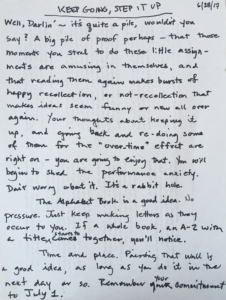 KEEP GOING, STEP IT UP
6/28/17
Well, Darlin' ~ it's quite a pile, wouldn't you
say? A big pile of proof perhaps – that those
moments you steal to do these little assign-
ments are amusing in themselves, and
that reading them again makes bursts of
happy recollection, or not-recollection that
makes ideas seem funny or new all over
again. Your thoughts about keeping it
up, and going back and re-doing some
of them for the "over-time" effect are
right on – you are going to enjoy that. You will
begin to shed the performance anxiety.
Don't worry about it. It's a rabbit hole.
The Alphabet Book is a good idea. No
pressure. Just keep making letters as they
occur to you. If a whole book, an A-Z with
a title, starts to come together, you'll notice.
Time and place. Painting that wall is
a good idea, as long as you do it in the
next day or so. Remember your commitment
to July 1.